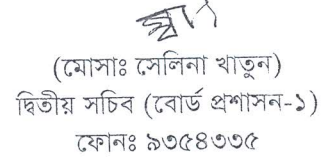 (মোসাঃ সেলিনা খাতুন)
দ্বিতীয় সচিব (বোর্ড প্রশাসন-১)
ফোনঃ ৯৩৫৪৩৩৫